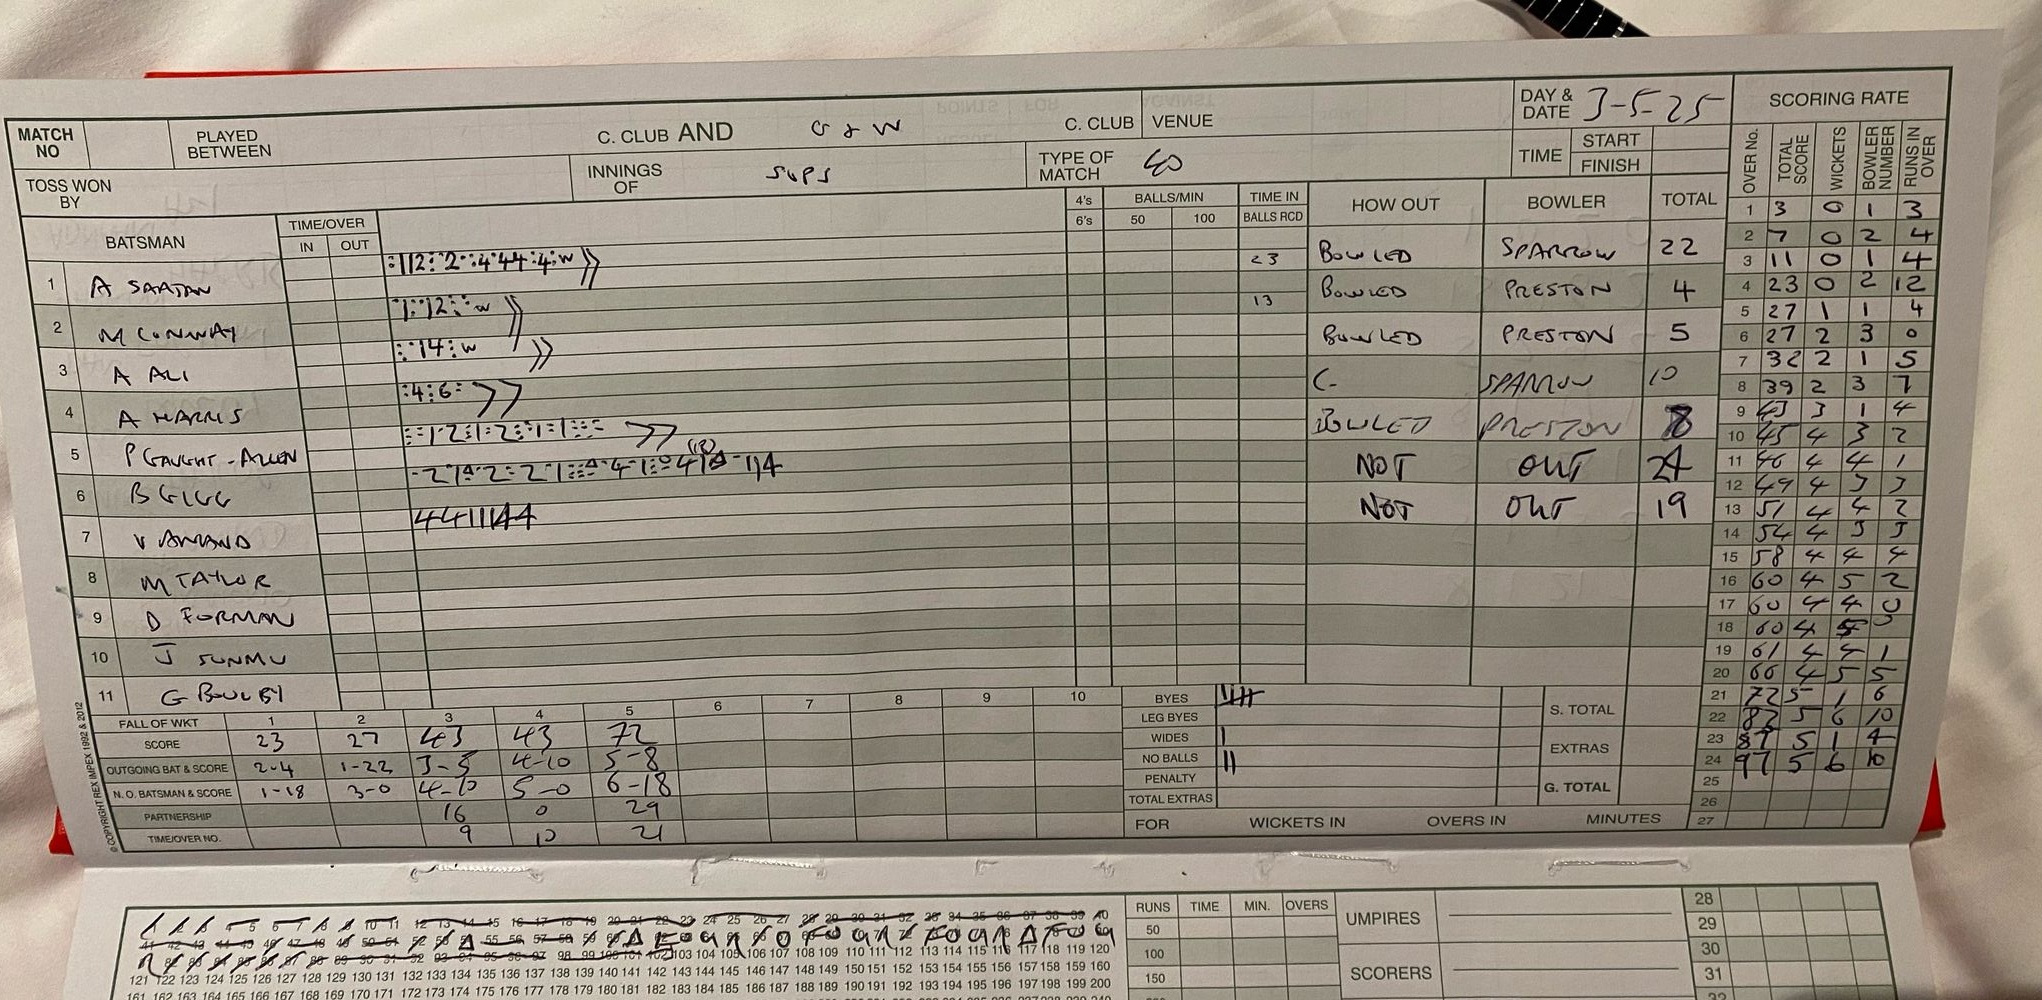 MATCH NO PLAYED BETWEEN C. CLUB AND G & W C. CLUB VENUE DAY & DATE 3-5-25 SCORING RATE
TOSS WON BY INNINGS OF SUPS TYPE OF MATCH 40 TIME START FINISH
BATSMAN TIME/OVER IN OUT 4's 6's BALLS/MIN 50 100 TIME IN BALLS RCD HOW OUT BOWLER TOTAL
OVER No. TOTAL SCORE WICKETS BOWLER NUMBER RUNS IN OVER
1 A 23 BOWLED SPARROW 22
2 M CONWAY 13 BOWLED PRESTON 4
3 A ALI BOWLED PRESTON 5
4 A HARRIS C- SPARROW 10
5 P GAUGHT-ALLEN BOWLED PRESTON 8
6 B GIGG NOT OUT 24
7 V ANAND 4411144 NOT OUT 19
8 M TAYLOR
9 D FORMAN
10 J SUNMU
11 G BOULBY
1 3 0 1 3
2 7 0 2 4
3 11 0 1 4
4 23 0 2 12
5 27 1 1 4
6 27 2 3 0
7 32 2 1 5
8 39 2 3 7
9 43 3 1 4
10 45 4 3 2
11 46 4 4 1
12 49 4 3 3
13 51 4 4 2
14 54 4 3 3
15 58 4 4 4
16 60 4 5 2
17 60 4 4 0
18 60 4 5
19 61 4 4 1
20 66 4 5 5
21 72 5 1 6
22 82 5 6 10
23 87 5 1 4
24 97 5 6 10
25
26
27
FALL OF WKT 1 2 3 4 5 6 7 8 9 10
SCORE 23 27 43 43 72
OUTGOING BAT & SCORE 2-4 1-22 3-5 4-10 5-8
N.O. BATSMAN & SCORE 1-18 3-0 4-10 5-0 6-18
PARTNERSHIP 16 0 29
TIME/OVER NO. 9 10 21
BYES S. TOTAL
LEG BYES
WIDES EXTRAS
NO BALLS
PENALTY G. TOTAL
TOTAL EXTRAS
FOR WICKETS IN OVERS IN MINUTES
© COPYRIGHT REX IMPEX 1992 & 2012
RUNS TIME MIN. OVERS UMPIRES 28
50 29
100 30
150 SCORERS 31
103 104 105 106 107 108 109 110 111 112 113 114 115 116 117 118 119 120
121 122 123 124 125 126 127 128 129 130 131 132 133 134 135 136 137 138 139 140 141 142 143 144 145 146 147 148 149 150 151 152 153 154 155 156 157 158 159 160
161 162 163 164 165 166 167 168 169 170 171 172 173 174 175 176 177 178 179 180 181 182 183 184 185 186 187 188 189 190 191 192 193 194 195 196 197 198 199 200